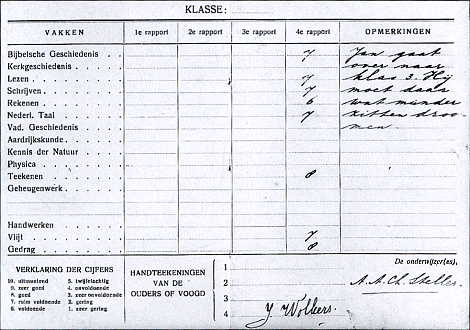 KLASSE:
VAKKEN 1e rapport 2e rapport 3e rapport 4e rapport OPMERKINGEN
Bijbelsche Geschiedenis . 7 Jan gaat
Kerkgeschiedenis . . . . over naar
Lezen . . . . . . . . 7 klas 3. Hij
Schrijven . . . . . . . 7 moet daar
Rekenen . . . . . . . 6 wat minder
Nederl. Taal . . . . . . 7 zitten droo-
Vad. Geschiedenis . . . . men.
Aardrijkskunde . . . . .
Kennis der Natuur . . . .
Physica . . . . . . .
Teekenen . . . . . . . 8
Geheugenwerk . . . . . .
Handwerken . . . . . .
Vlijt . . . . . . . . 7
Gedrag . . . . . . . . 8
VERKLARING DER CIJFERS
10. uitmuntend 5. twijfelachtig
9. zeer goed 4. onvoldoende
8. goed 3. zeer onvoldoende
7. ruim voldoende 2. gering
6. voldoende 1. zeer gering
HANDTEEKENINGEN
VAN DE
OUDERS OF VOOGD
1
2
3
4 J. Wolkers.
De onderwijzer(es),
A. A. Ch. Stelles.